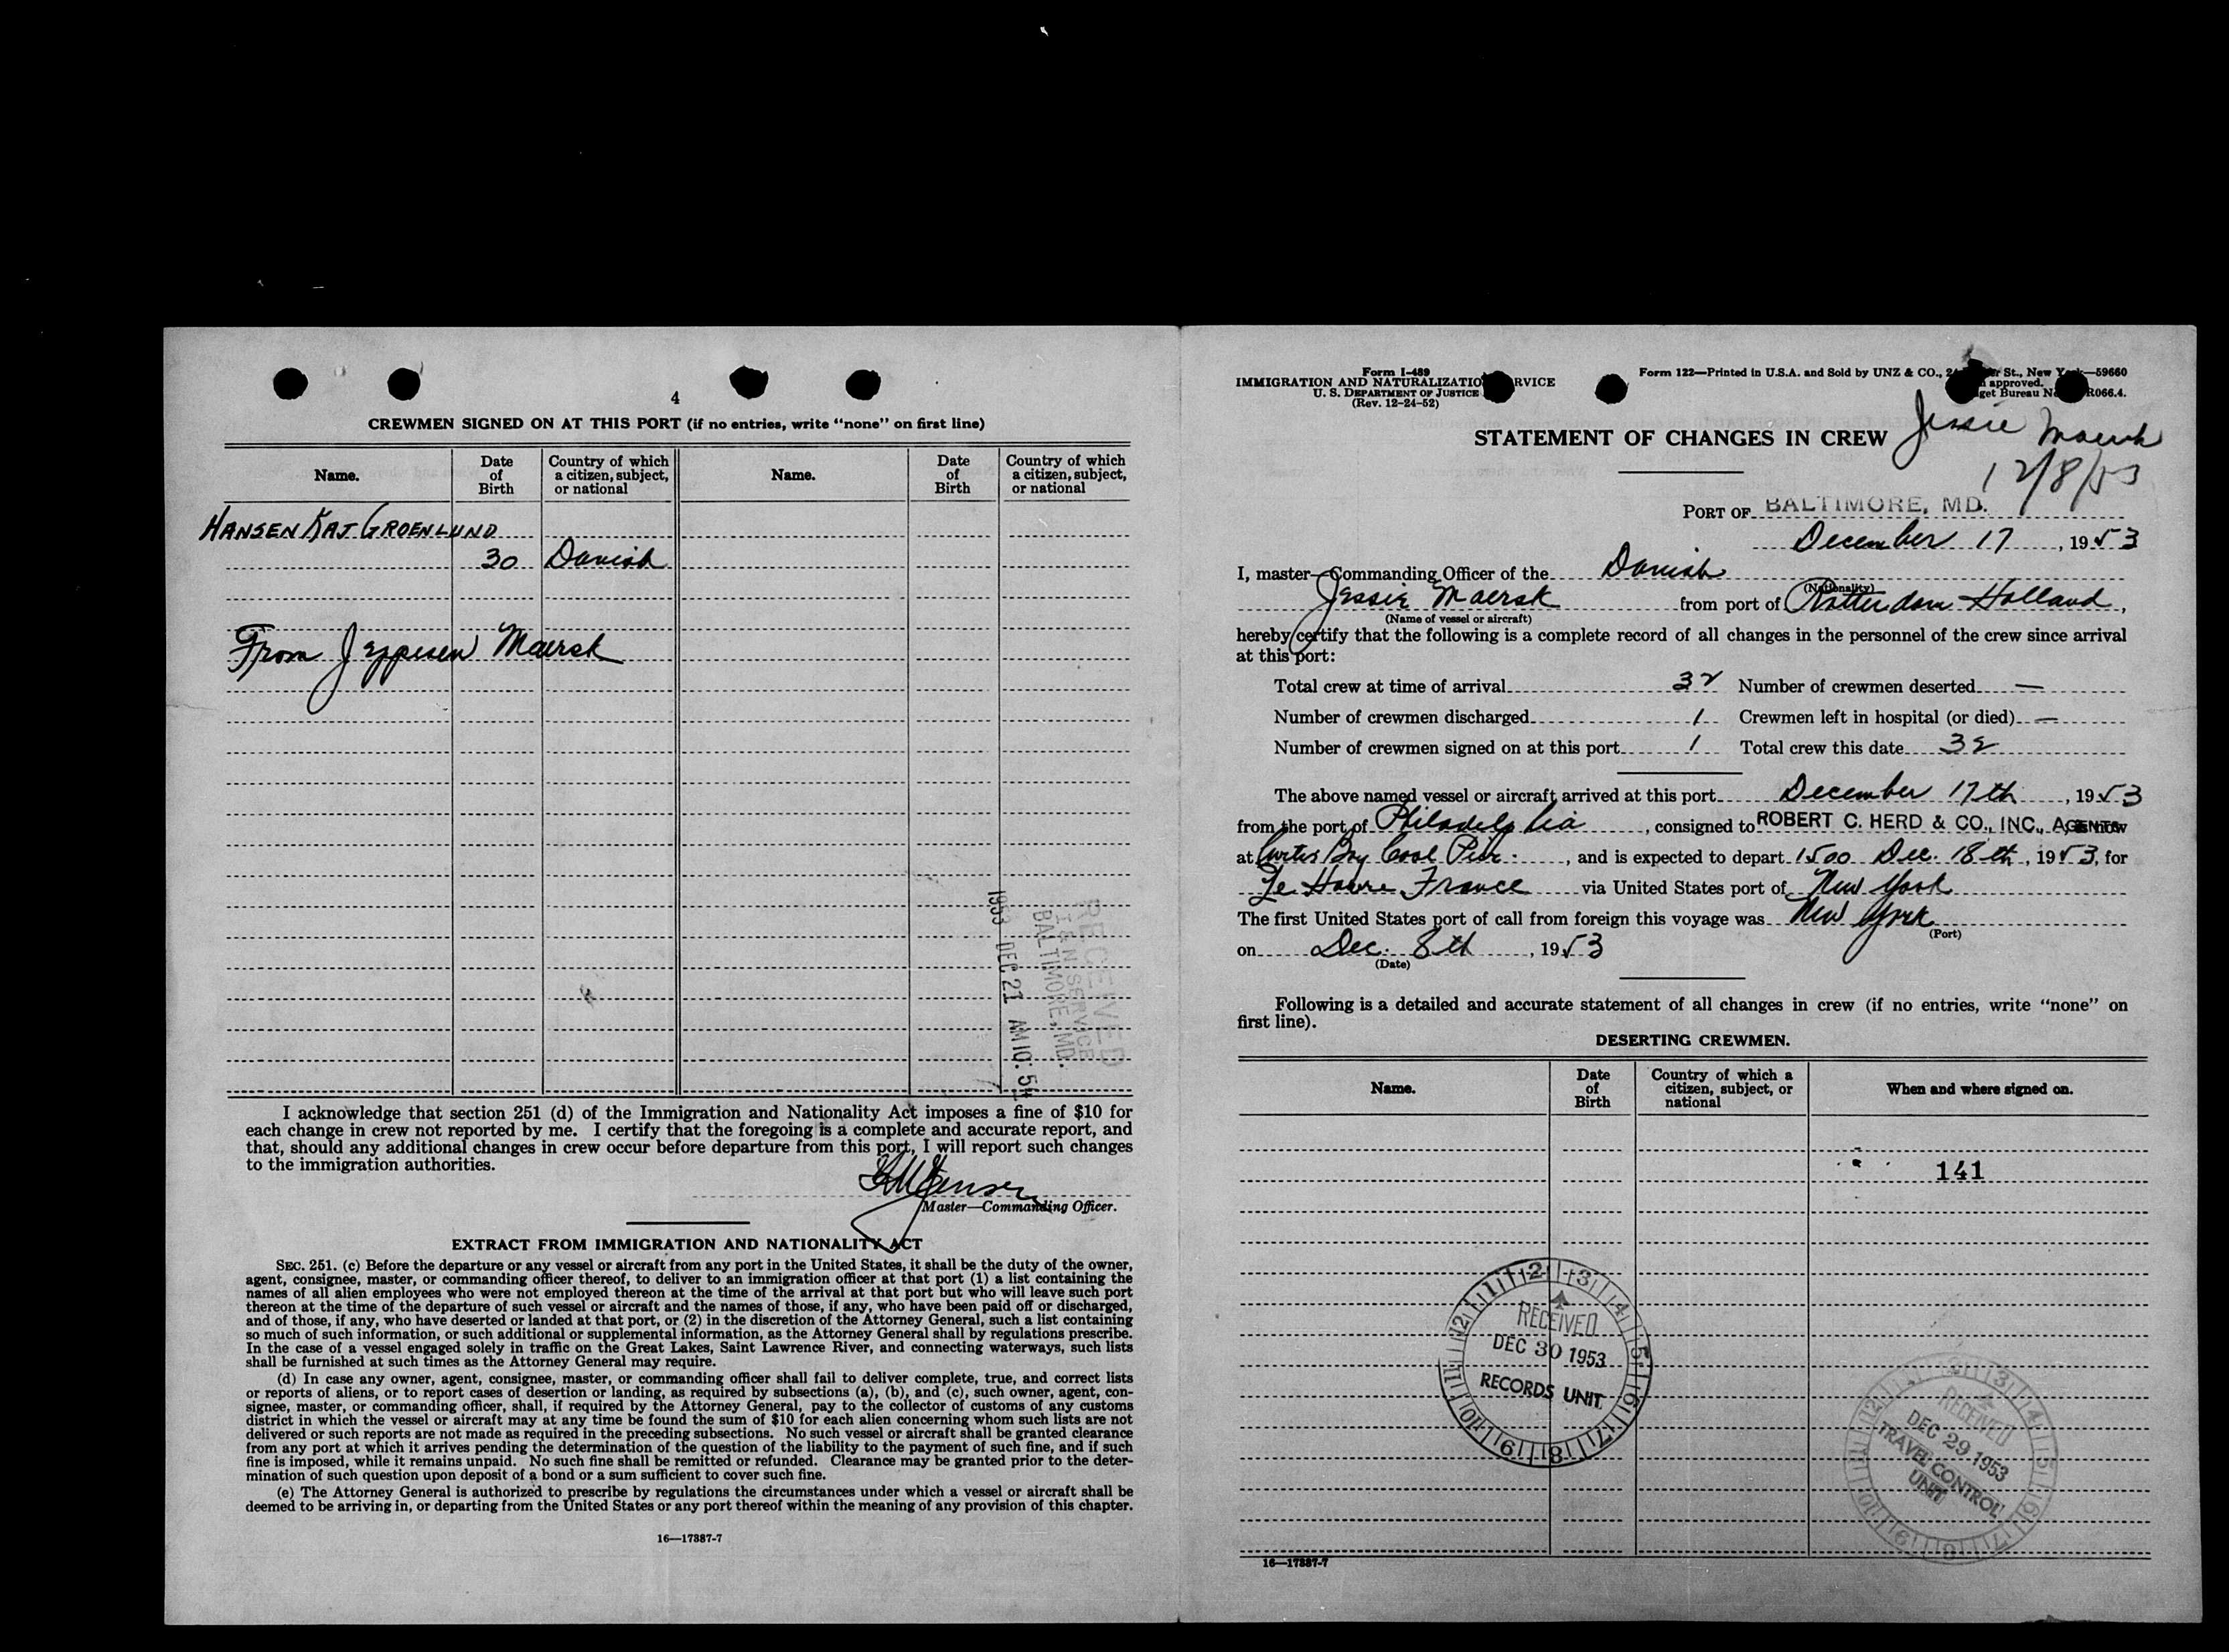 4
CREWMEN SIGNED ON AT THIS PORT (if no entries, write "none" on first line)
Name. Date of Birth Country of which a citizen, subject, or national Name. Date of Birth Country of which a citizen, subject, or national
HANSEN KAJ GROENLUND
30 Danish
From Jeppesen Maersk
RECEIVED
I & N SERVICE
BALTIMORE, MD.
1953 DEC 21 AM 10: 54
I acknowledge that section 251 (d) of the Immigration and Nationality Act imposes a fine of $10 for
each change in crew not reported by me. I certify that the foregoing is a complete and accurate report, and
that, should any additional changes in crew occur before departure from this port, I will report such changes
to the immigration authorities.
Jensen
Master—Commanding Officer.
EXTRACT FROM IMMIGRATION AND NATIONALITY ACT
SEC. 251. (c) Before the departure or any vessel or aircraft from any port in the United States, it shall be the duty of the owner,
agent, consignee, master, or commanding officer thereof, to deliver to an immigration officer at that port (1) a list containing the
names of all alien employees who were not employed thereon at the time of the arrival at that port but who will leave such port
thereon at the time of the departure of such vessel or aircraft and the names of those, if any, who have been paid off or discharged,
and of those, if any, who have deserted or landed at that port, or (2) in the discretion of the Attorney General, such a list containing
so much of such information, or such additional or supplemental information, as the Attorney General shall by regulations prescribe.
In the case of a vessel engaged solely in traffic on the Great Lakes, Saint Lawrence River, and connecting waterways, such lists
shall be furnished at such times as the Attorney General may require.
(d) In case any owner, agent, consignee, master, or commanding officer shall fail to deliver complete, true, and correct lists
or reports of aliens, or to report cases of desertion or landing, as required by subsections (a), (b), and (c), such owner, agent, con-
signee, master, or commanding officer, shall, if required by the Attorney General, pay to the collector of customs of any customs
district in which the vessel or aircraft may at any time be found the sum of $10 for each alien concerning whom such lists are not
delivered or such reports are not made as required in the preceding subsections. No such vessel or aircraft shall be granted clearance
from any port at which it arrives pending the determination of the question of the liability to the payment of such fine, and if such
fine is imposed, while it remains unpaid. No such fine shall be remitted or refunded. Clearance may be granted prior to the deter-
mination of such question upon deposit of a bond or a sum sufficient to cover such fine.
(e) The Attorney General is authorized to prescribe by regulations the circumstances under which a vessel or aircraft shall be
deemed to be arriving in, or departing from the United States or any port thereof within the meaning of any provision of this chapter.
16—17887-7
Form I-489
IMMIGRATION AND NATURALIZATIO RVICE
U. S. DEPARTMENT OF JUSTICE
(Rev. 12-24-52)
Form 122—Printed in U.S.A. and Sold by UNZ & CO., St., New York—59660
approved.
get Bureau No R066.4.
STATEMENT OF CHANGES IN CREW Jessie Maersk
12/8/53
PORT OF BALTIMORE, MD.
December 17, 1953
I, master—Commanding Officer of the Danish
(Nationality)
Jessie Maersk from port of Rotterdam Holland,
(Name of vessel or aircraft)
hereby certify that the following is a complete record of all changes in the personnel of the crew since arrival
at this port:
Total crew at time of arrival 32 Number of crewmen deserted —
Number of crewmen discharged 1 Crewmen left in hospital (or died) —
Number of crewmen signed on at this port 1 Total crew this date 32
The above named vessel or aircraft arrived at this port December 17th, 1953
from the port of Philadelphia, consigned to ROBERT C. HERD & CO., INC., AGENTS, is now
at Curtis Bay Coal Pier, and is expected to depart 1500 Dec. 18th, 1953, for
Le Havre, France via United States port of New York
The first United States port of call from foreign this voyage was New York
(Port)
on Dec. 8th, 1953
(Date)
Following is a detailed and accurate statement of all changes in crew (if no entries, write "none" on
first line).
DESERTING CREWMEN.
Name. Date of Birth Country of which a citizen, subject, or national When and where signed on.
141
RECEIVED
DEC 30 1953
RECORDS UNIT
RECEIVED
DEC 29 1953
TRAVEL CONTROL
UNIT
16—17887-7